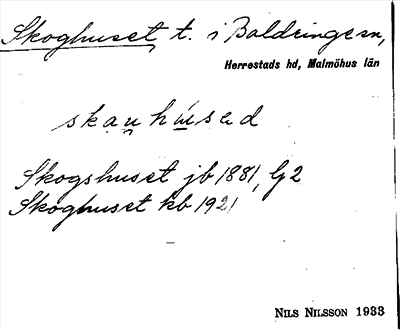 Skoghuset, t. i Baldringe sn,
Herrestads hd, Malmöhus län
skau̯húsəd
Skogshuset jb 1881, G2
Skoghuset kb 1921
NILS NILSSON 1933